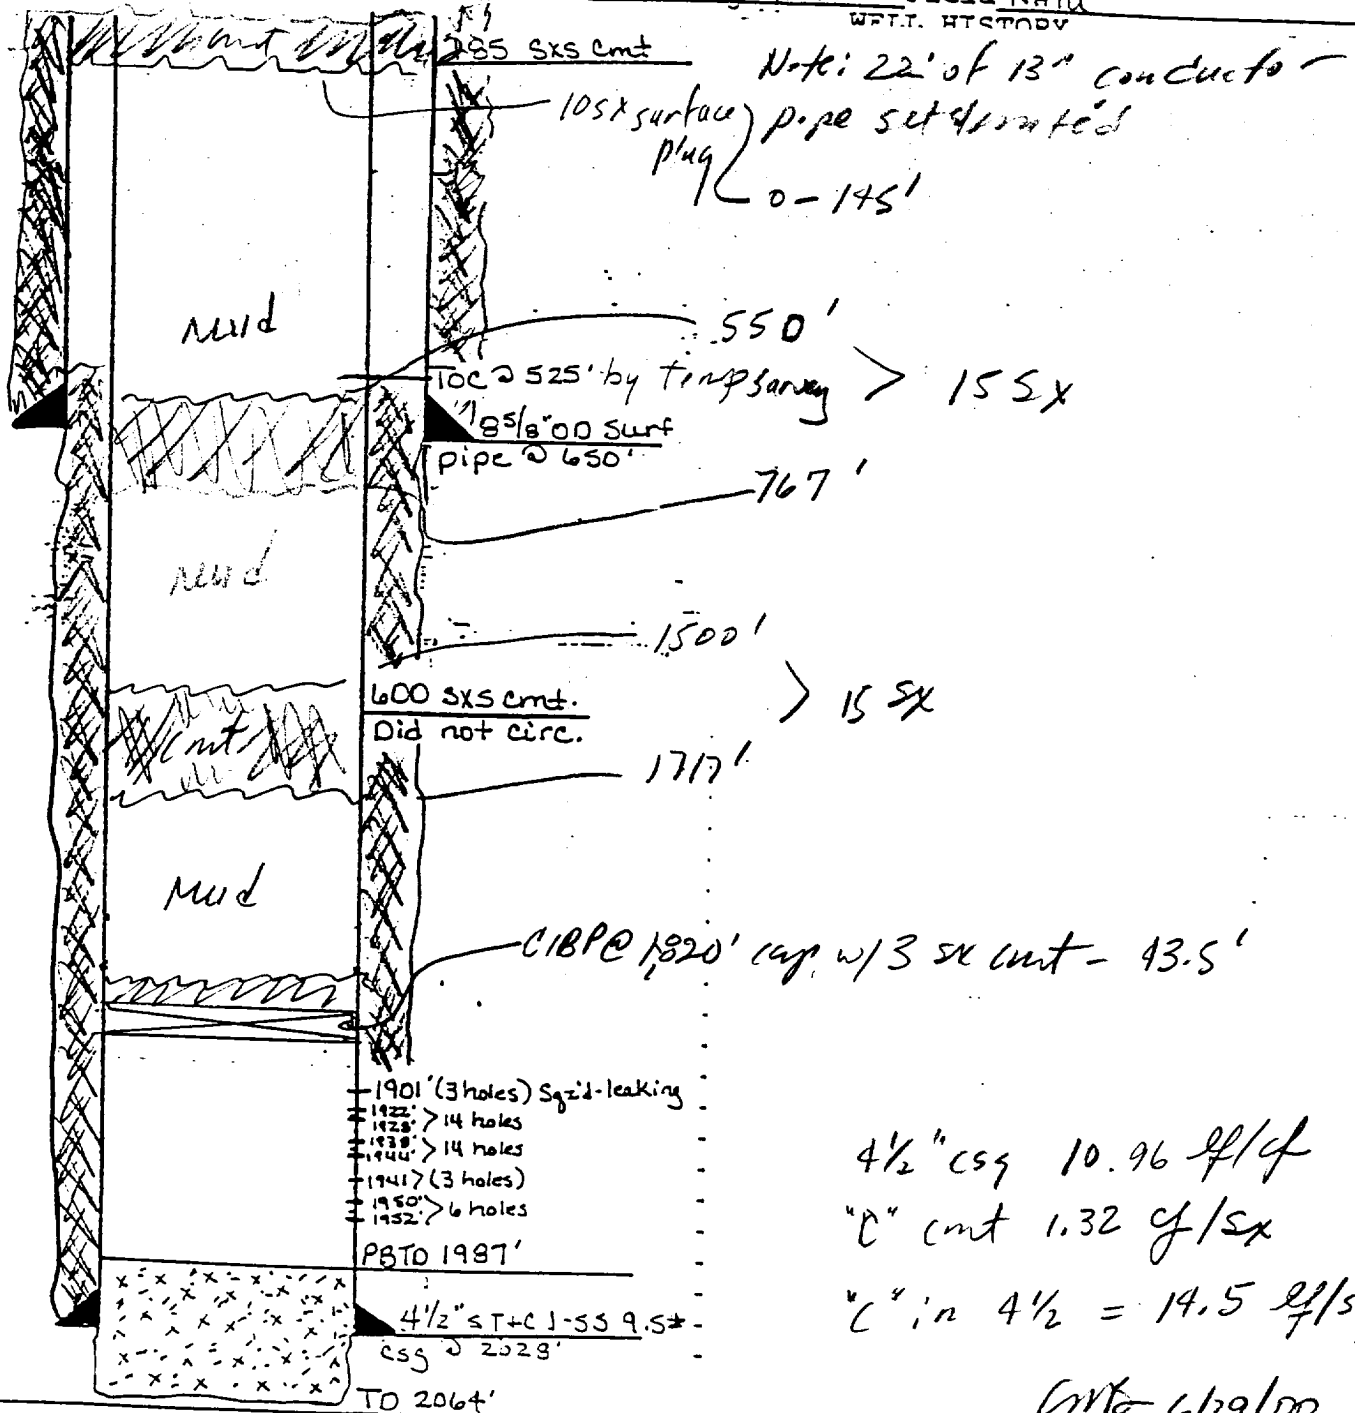 WELL HISTORY
285 sxs cmt
Note: 22' of 13" conductor
pipe set
10sx surface
plug
0-145'
Mud
550'
TOC @ 525' by temp survey > 15 sx
8 5/8" OD Surf
pipe @ 650'
767'
Mud
1500'
600 sxs cmt.
Did not circ.
> 15 sx
cmt
1717'
Mud
CIBP @ 1,820' cap w/ 3 sx cmt - 43.5'
1901' (3 holes) Sqz'd-leaking
1922'
1928' > 14 holes
1938'
1944' > 14 holes
1941 > (3 holes)
1950'
1952' > 6 holes
PBTD 1987'
4 1/2" csg 10.96 lf/cf
"C" cmt 1.32 cf/sx
"C" in 4 1/2 = 14.5 lf/s
4 1/2" ST+C J-55 9.5#
csg @ 2028'
TD 2064'
6/29/00